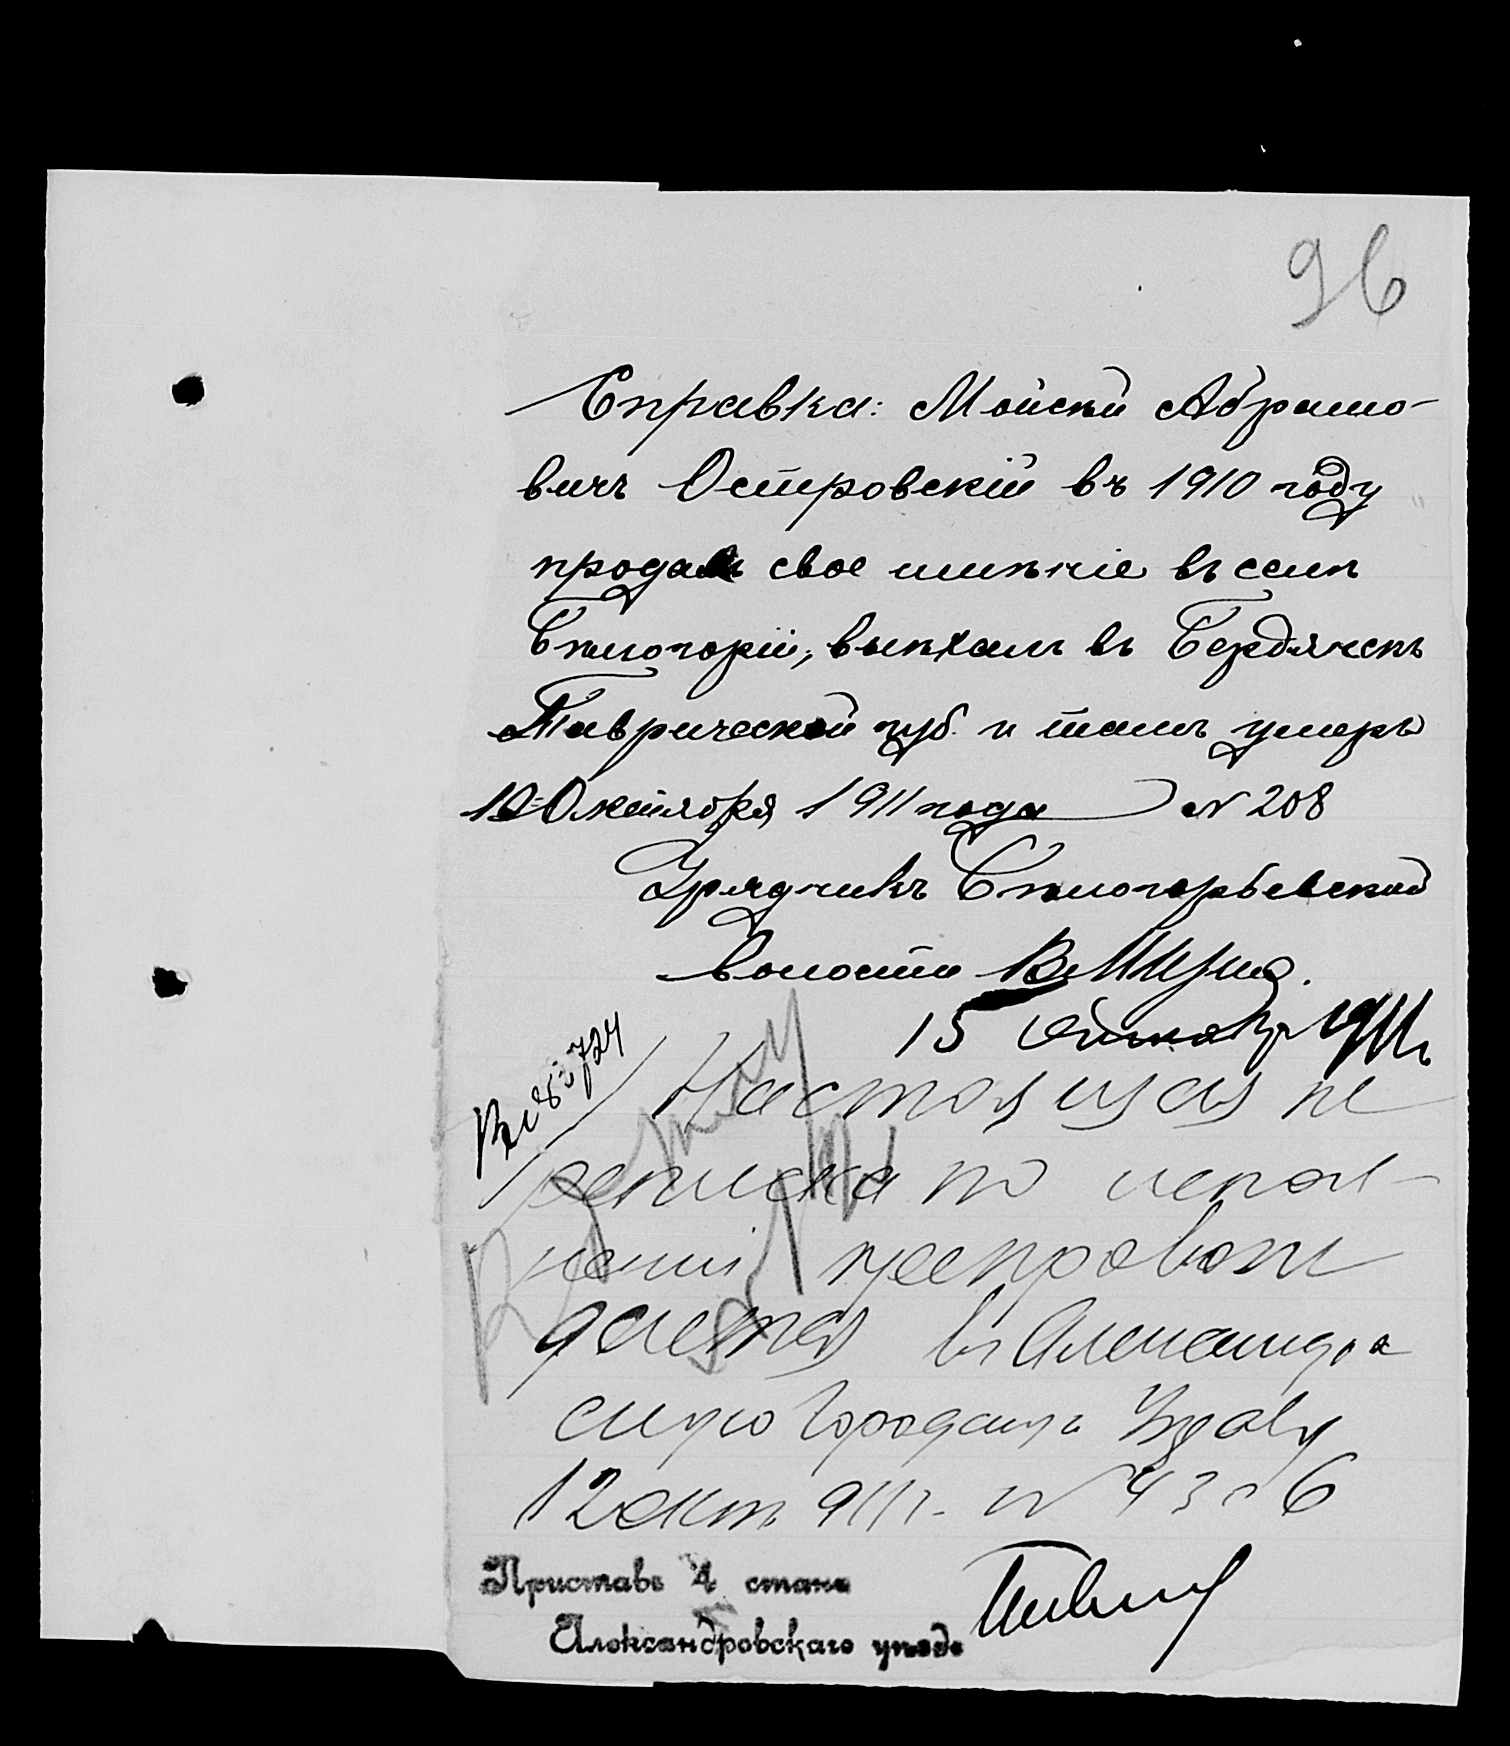 96
Справка: Мойсей Абрамо-
вичъ Островскій въ 1910 году
продалъ свое имѣніе въ селѣ
Бѣлогорьи, выѣхалъ въ Бердянскъ
Таврической губ. и тамъ умеръ
10 Октября 1911 года № 208
Урядникъ Бѣлогорьевской
волости
15 1911
724
Настоящая пе
реписка по испол-
неніи препровож
дается въ Александро
скую Городскую Управу
12 Окт. 911 г. № 4306
Приставъ 4 стана
Александровскаго уѣзда